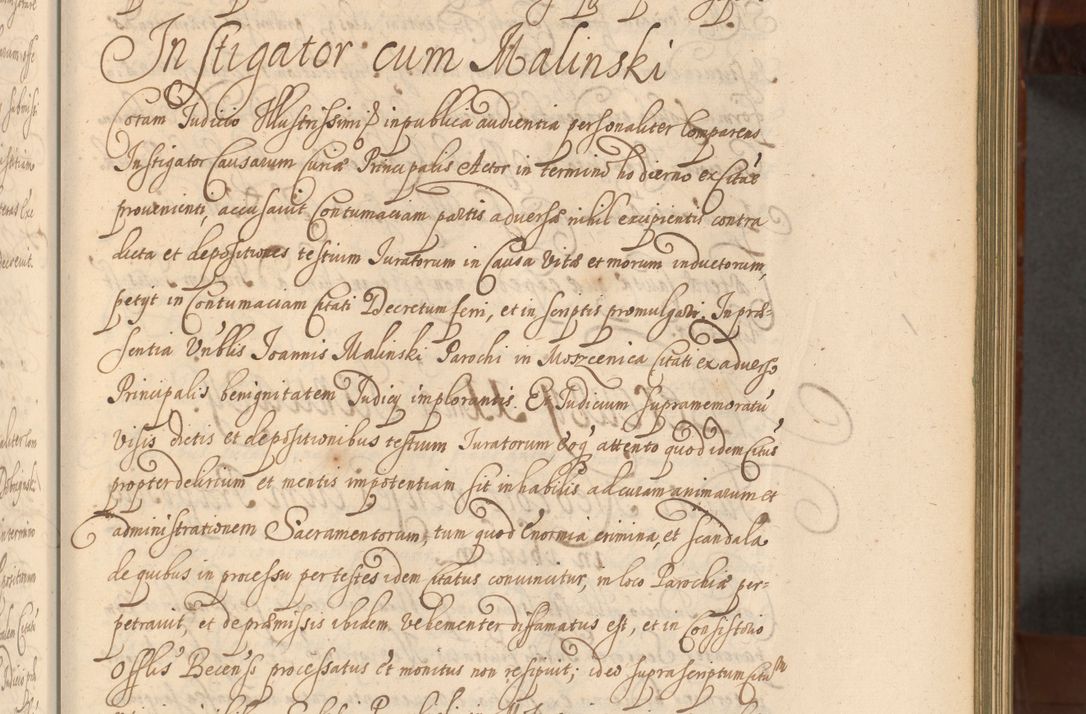 Instigator cum Malinski
Coram Judicio Illustrissimi D in publica audientia personaliter Comparens
Instigator Causarum Curiæ Principalis Actor in termino hodierno ex Citãe
provenienti, accusavit Contumaciam partis adversæ nihil excipientis contra
dicta et depositiones testium Juratorum in Causa Vitæ et morum inductorum,
petyt in Contumaciam Citati Decretum ferri, et in scriptis promulgari. In præ-
sentia Vnblis Joannis Malinski Parochi in Moszcenica Citati ex adverso
Principalis benignitatem Judicij implorantis. Et Judicium supramemoratũ
visis dictis et depositionibus testium Juratorum eoq attento quod idem Citus
propter delirium et mentis impotentiam sit inhabilis ad curam animarum et
administrationem Sacramentorum, tum quod Enormia crimina, et scandala
de quibus in processu per testes idem citatus convincitur, in loco Parochiæ per-
petravit, et de præmissis ibidem vehementer diffamatus est, et in Consistorio
Offlis Becensi processatus et monitus non resipuit; ideo suprascriptum Citum